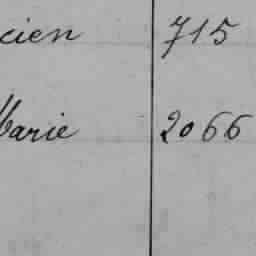 cien 715
Marie 2066